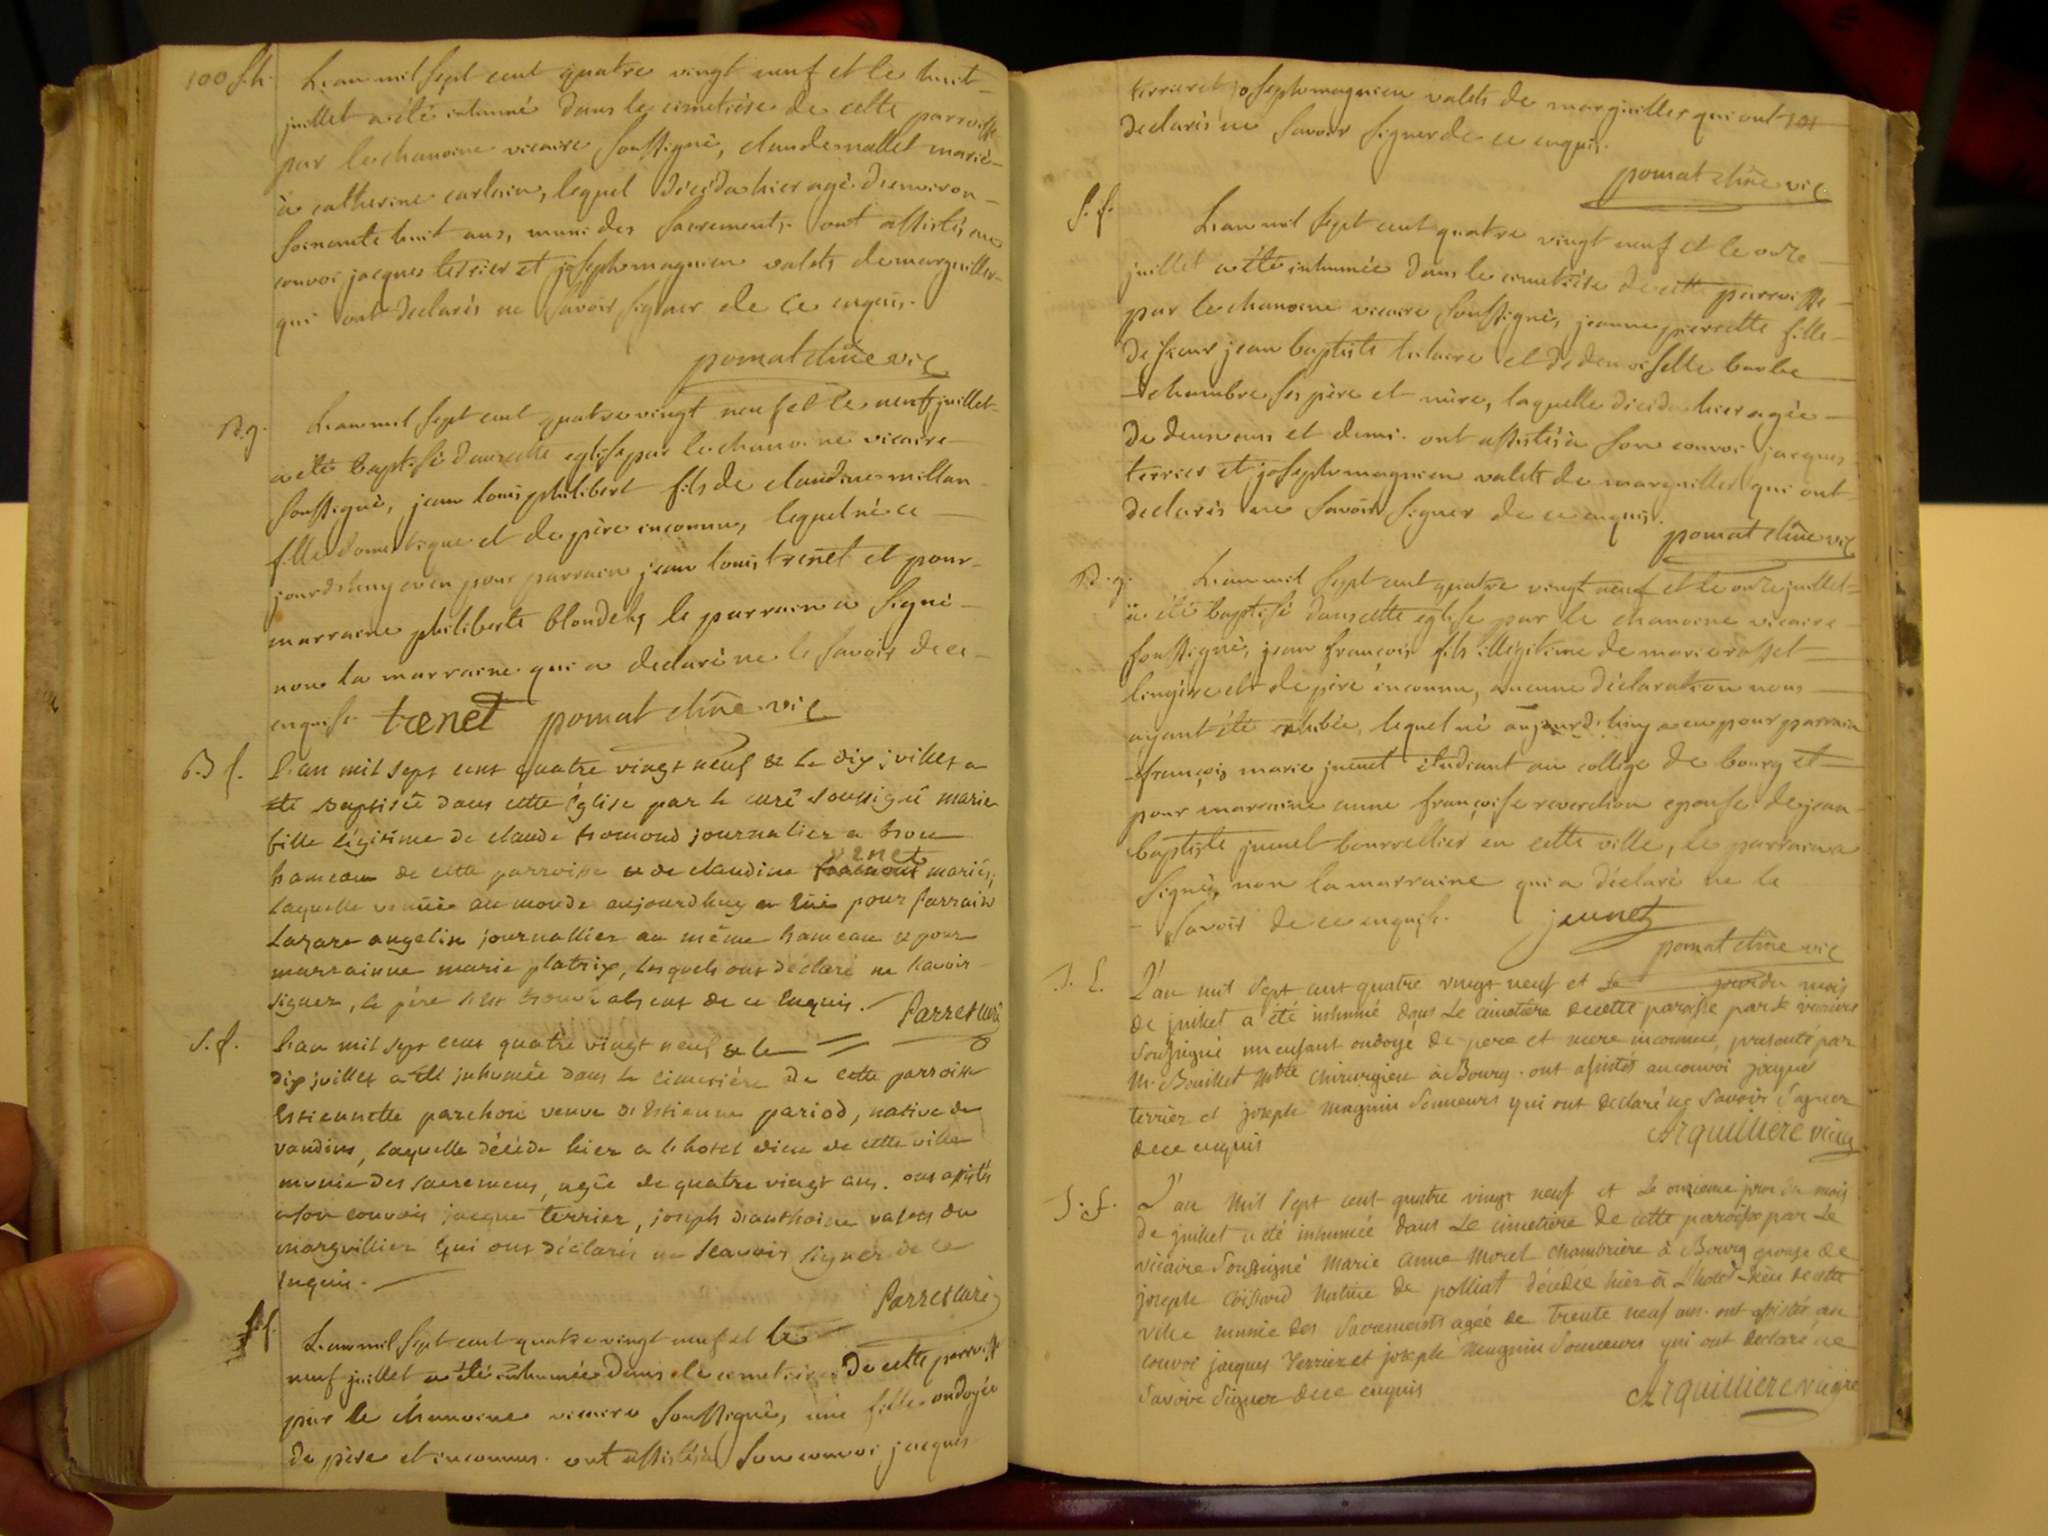 100 S.h. L'an mil sept cent quatre vingt neuf et le huit
juillet a été inhumé dans le cimetière de cette parroisse
par le chanoine vicaire soussigné, claude mallet marié
à catherine carlain, lequel décéda hier agé d'environ
soixante huit ans, muni des sacrements. ont assistés au
convoi jacques terrier et joseph magnien valets de marguillier
qui ont declarés ne savoir signer de ce enquis.
pomat chne vic
B.g. L'an mil sept cent quatre vingt neuf et le neuf juillet
a été baptisé dans cette eglise par le chanoine vicaire
soussigné, jean louis philibert fils de claudine millan
fille domestique et de père inconnu, lequel né ce
jourd'huy a eu pour parrain jean louis trenet et pour
marraine philiberte blondel, le parrain a signé
non la marraine qui a declaré ne le savoir de ce
enquise. trenet pomat chne vic
B f. L'an mil sept cent quatre vingt neuf & le dix juillet a
été baptisée dans cette église par le curé soussigné marie
fille légitime de claude homond journalier a
hameau de cette parroisse & de claudine venet mariés,
laquelle venüe au monde aujourdhuy a eüe pour parrain
Lazare angelin journallier au même hameau & pour
marrainne marie platrix, lesquels ont déclaré ne scavoir
signer, le père s'est trouvé absent de ce enquis. Parret curé
S. f. L'an mil sept cent quatre vingt neuf & le
dix juillet a été inhumée dans le cimetière de cette parroisse
Estiennette parchou veuve d'Estienne pariod, native de
vandins, laquelle décéda hier a l'hotel dieu de cette ville
munie des sacremens, agée de quatre vingt ans. ont assistés
a son convois jacque terrier, joseph valets du
marguillier qui ont déclarés ne scavoir signer de ce
enquis.
Parret curé
S.f. L'an mil sept cent quatre vingt neuf et le
neuf juillet a été inhumée dans le cimetière de cette parroisse
par le chanoine vicaire soussigné, une fille ondoyée
de père et inconnus. ont assistés à son convoi jacques
terrier et joseph magnien valets de marguillier qui ont 101
declarés ne savoir signer de ce enquis.
pomat chne vic
S. f. L'an mil sept cent quatre vingt neuf et le onze
juillet a été inhumée dans le cimetière de cette parroisse
par le chanoine vicaire soussigné, jeanne pierrette fille
de sieur jean baptiste et de demoiselle barbe
dechambre, ses père et mère, laquelle décéda hier agée
de deux ans et demi. ont assistés à son convoi jacques
terrier et joseph magnien valets de marguillier qui ont
declarés ne savoir signer de ce enquis.
pomat chne vic
B. g. L'an mil sept cent quatre vingt neuf et le onze juillet
a été baptisé dans cette eglise par le chanoine vicaire
soussigné, jean françois fils illégitime de marie rosset
lingère et de père inconnu, aucune déclaration nous
ayant été exhibée, lequel né aujourd'huy a eu pour parrain
françois marie juenet étudiant au collège de bourg et
pour marraine anne françoise reverchon epouse de jean
baptiste juenet bourrellier en cette ville, le parrain a
signé, non la marraine qui a déclaré ne le
savoir de ce enquise. juenet
pomat chne vic
L'an mil sept cent quatre vingt neuf et le jour du mois
de juillet a été inhumé dans le cimetière de cette paroisse par le vicaire
soussigné un enfant ondoyé de pere et mere inconnus, presenté par
Mr Bouillet Mtre chirurgien à Bourg. ont assistés au convoi jacque
terrier et joseph magnin sonneurs qui ont declaré ne savoir signer
de ce enquis Arquilliere vicaire
S. f. L'an mil sept cent quatre vingt neuf et le onzieme jour du mois
de juillet a été inhumée dans le cimetiere de cette paroisse par le
vicaire soussigné marie anne morel chambrière à Bourg epouse de
joseph coissard native de polliat décédée hier à l'hotel-dieu de cette
ville munie des sacrements agée de trente neuf ans. ont assistés au
convoi jacques terrier et joseph magnin sonneurs qui ont declaré ne
savoir signer de ce enquis Arquilliere vicaire